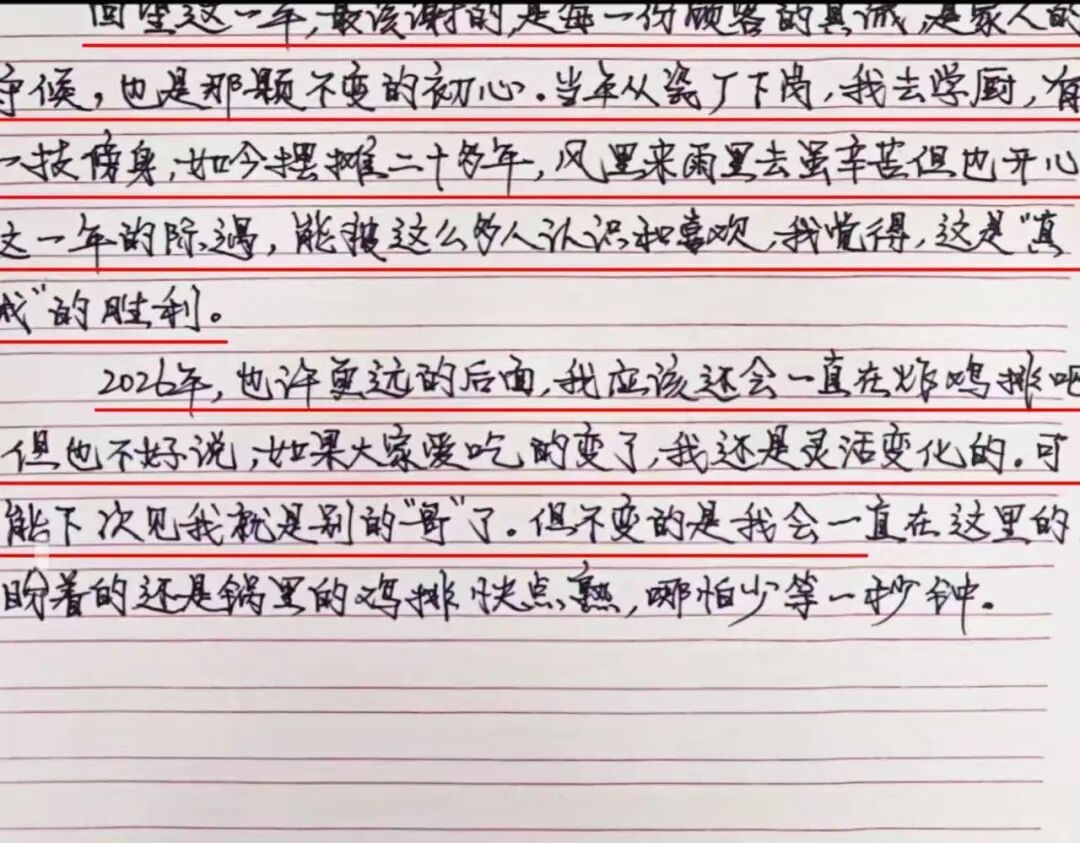 回望这一年,最该谢的,是每一份顾客的真诚,是家人的
守候,也是那颗不变的初心。当年从瓷厂下岗,我去学厨,有
一技傍身,如今摆摊二十多年,风里来雨里去虽辛苦但也开心
这一年的际遇,能被这么多人认识和喜欢,我觉得,这是“真
诚”的胜利。
2026年,也许更远的后面,我应该还会一直在炸鸡排吧
但也不好说,如果大家爱吃的变了,我还是灵活变化的。可
能下次见我就是别的“哥”了。但不变的是我会一直在这里的,
盼着的还是锅里的鸡排快点熟,哪怕少等一秒钟。